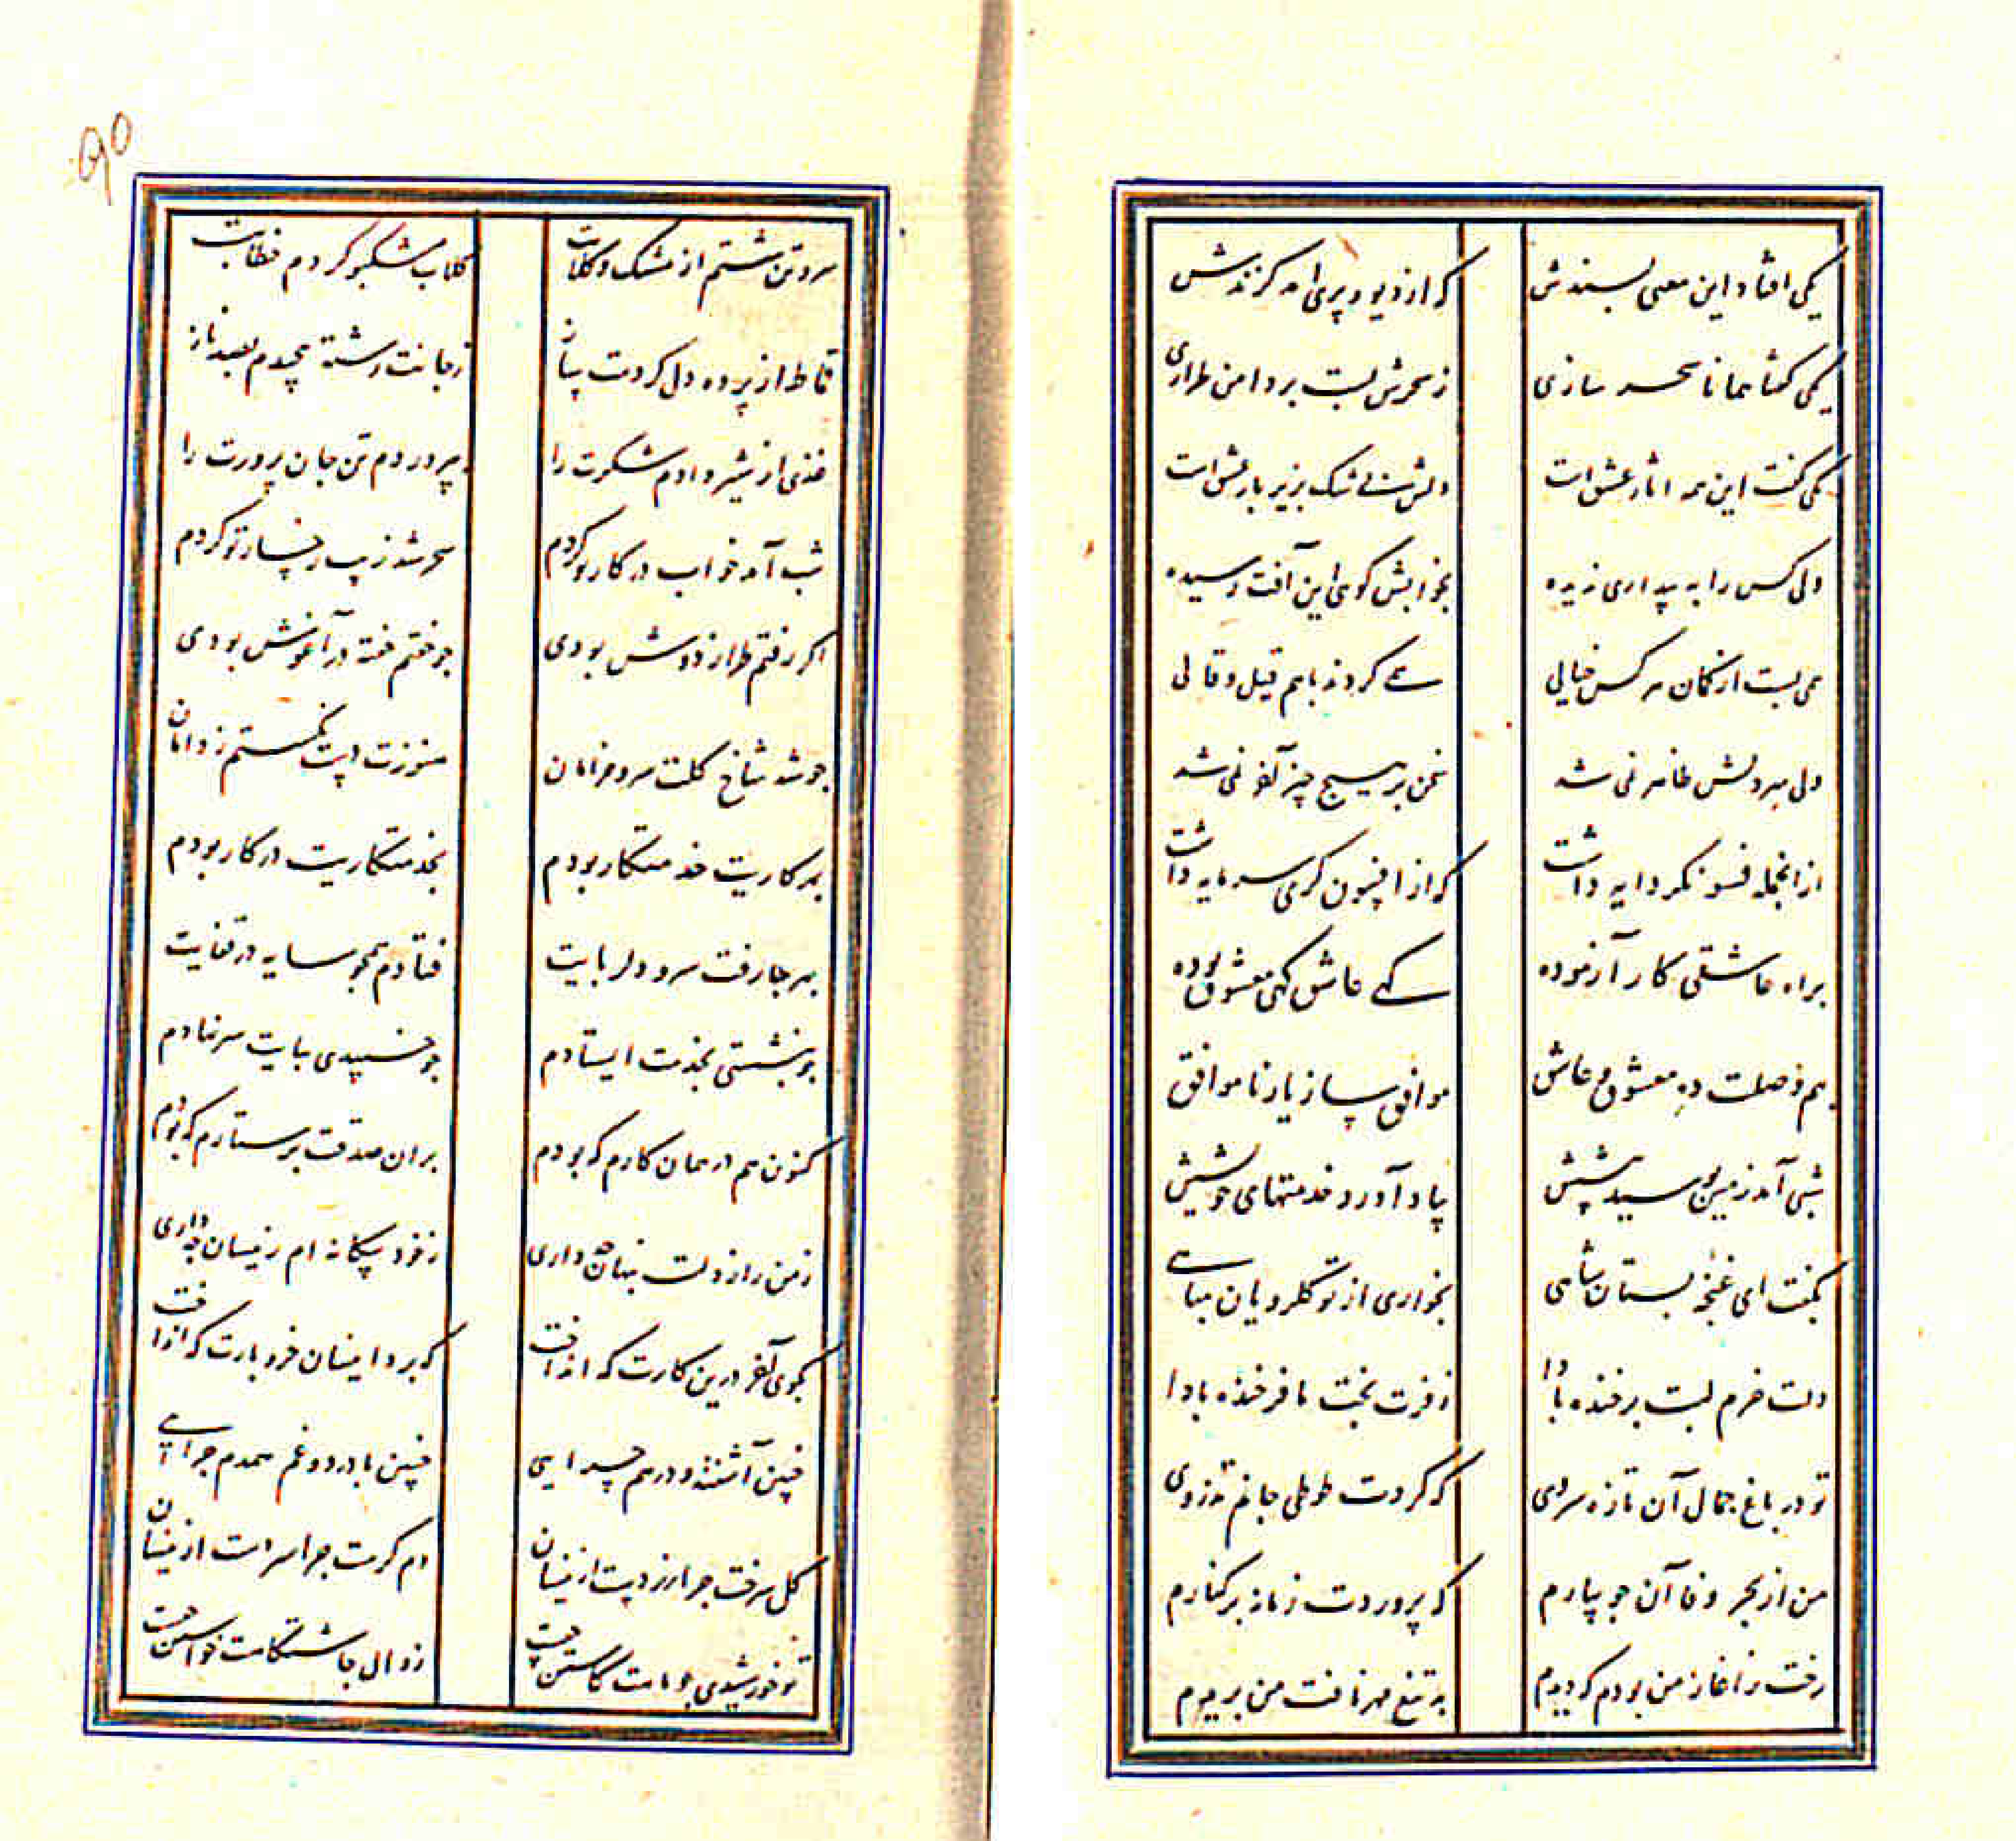 یکی افتاد این معنی پسندش
که از دیو و پری آمد گزندش
یکی گفتا همانا سحر سازی
ز سحرش بست بر دامن طرازی
یکی گفت این همه آثار عشق است
دلش بی شک بزیر بار عشق است
ولی کس را به بیداری ندیده
بخوابش گوئی این آفت رسیده
همی بست از گمان هر کس خیالی
همی کردند باهم قیل و قالی
ولی سر دلش ظاهر نمی شد
سخن بر هیچ چیز آخر نمی شد
از آنجمله فسونگر دایه داشت
که از افسون گری سرمایه داشت
براه عاشقی کار آزموده
گهی عاشق گهی معشوق بوده
بهم وصلت ده معشوق و عاشق
موافق ساز یار ناموافق
شبی آمد زمین بوسید پیشش
بیاد آورد خدمتهای خویشش
بگفت ای غنچه بستان شاهی
بخواری از تو گلرویان مباهی
دلت خرم لبت بر خنده بادا
ز فرت بخت ما فرخنده بادا
تو در باغ جمال آن تازه سروی
که گردت طوطی جانم تذروی
من از بحر وفا آن جویبارم
که پروردت زمانه برکنارم
رخت ز آغاز من بودم که دیدم
به تیغ مهر نافت من بریدم
سر و تن شستم از مشک و گلابت
گلاب مشکبو کردم خطابت
قماط از پرده دل کردمت باز
ز جانت رشته پیچیدم بصد ناز
غذی از شیر دادم شکرت را
بپروردم تن جان پرورت را
شب آمد خواب در کار تو کردم
سحر شد زیب رخسار تو کردم
اگر رفتم طراز دوش بودی
چو خفتم خفته در آغوش بودی
چو شد شاخ گلت سرو خرامان
هنوزت دست نگسستم ز دامان
بهر کاریت خدمتکار بودم
بخدمتکاریت در کار بودم
بهر جا رفت سرو دلربایت
فتادم همچو سایه در قفایت
چو بنشستی بخدمت ایستادم
چو خسپیدی بپایت سر نهادم
کنون هم در همان کارم که بودم
بران صدقت پرستارم که بودم
ز من راز دلت پنهان چه داری
ز خود بیگانه ام زینسان چه داری
بگوی آخر درین کارت که انداخت
که برد اینسان خرد بارت که انداخت
چنین آشفته و درهم چرایی
چنین با درد و غم همدم چرایی
گل سرخت چرا زرد است ازینسان
دم گرمت چرا سرد است ازینسان
تو خورشیدی چو ماهت کاستن چیست
زوال چاشتگاهت خواستن چیست